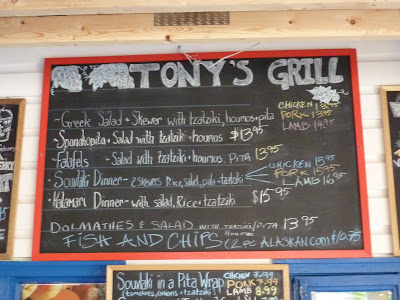 TONY'S GRILL
-Greek Salad + Skewer with tzatziki, houmos + pita CHICKEN 13.95
PORK 13.95
LAMB 14.95
-Spanakopita + Salad with tzatziki + houmos $13.95
-Falafels + Salad with tzatziki + houmos, PITA 13.95
-Souvlaki Dinner - 2 skewers, Rice, salad, pita + tzatziki CHICKEN 15.95
PORK 15.95
LAMB 16.95
-Kalamari Dinner - with salad, Rice + tzatziki $15.95
DOLMATHES & SALAD WITH TZATZIKI/PITA 13.95
FISH AND CHIPS (2 PC ALASKAN COD)
Souvlaki in a Pita Wrap CHICKEN 7.99
(tomatoes, onions + tzatziki) PORK 7.99
LAMB 8.99